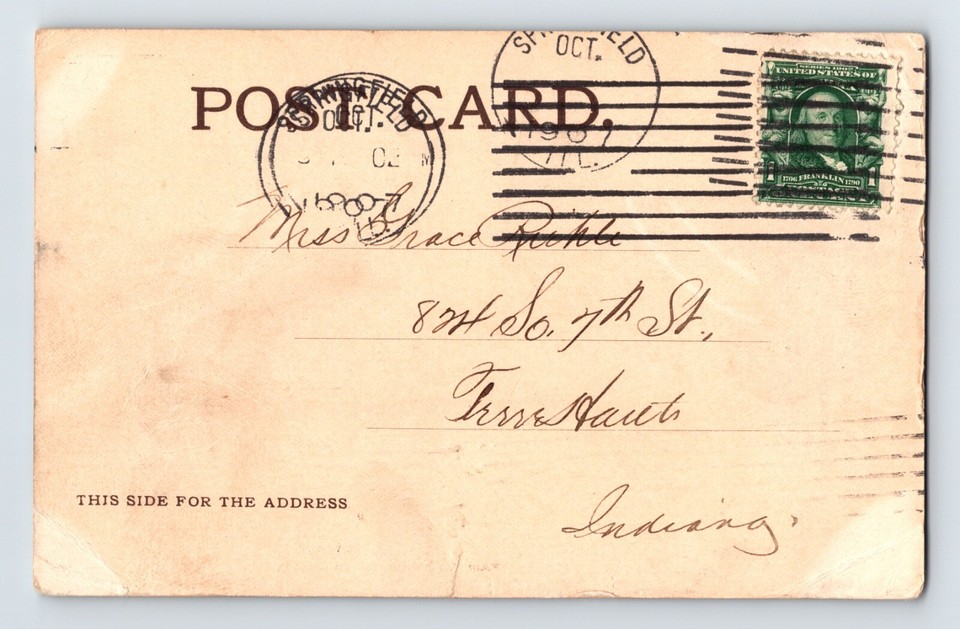 POST CARD.
SPRINGFIELD
OCT.
1907
ILL.
SPRINGFIELD
OCT.
1907
ILL.
SERIES 1902
UNITED STATES OF
1706 FRANKLIN 1790
1 1
Miss Grace
824 So. 7th St.,
Terre Haute
Indiana.
THIS SIDE FOR THE ADDRESS